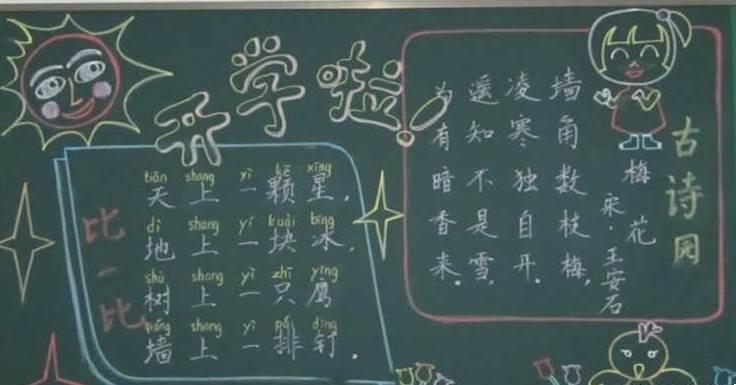 开学啦!
比一比
tiān shang yì kē xīng
天上一颗星,
dì shang yí kuài bīng
地上一块冰,
shù shang yì zhī yīng
树上一只鹰
qiáng shang yì pái dīng
墙上一排钉。
古诗园
梅花
宋·王安石
墙角数枝梅,
凌寒独自开。
遥知不是雪,
为有暗香来。